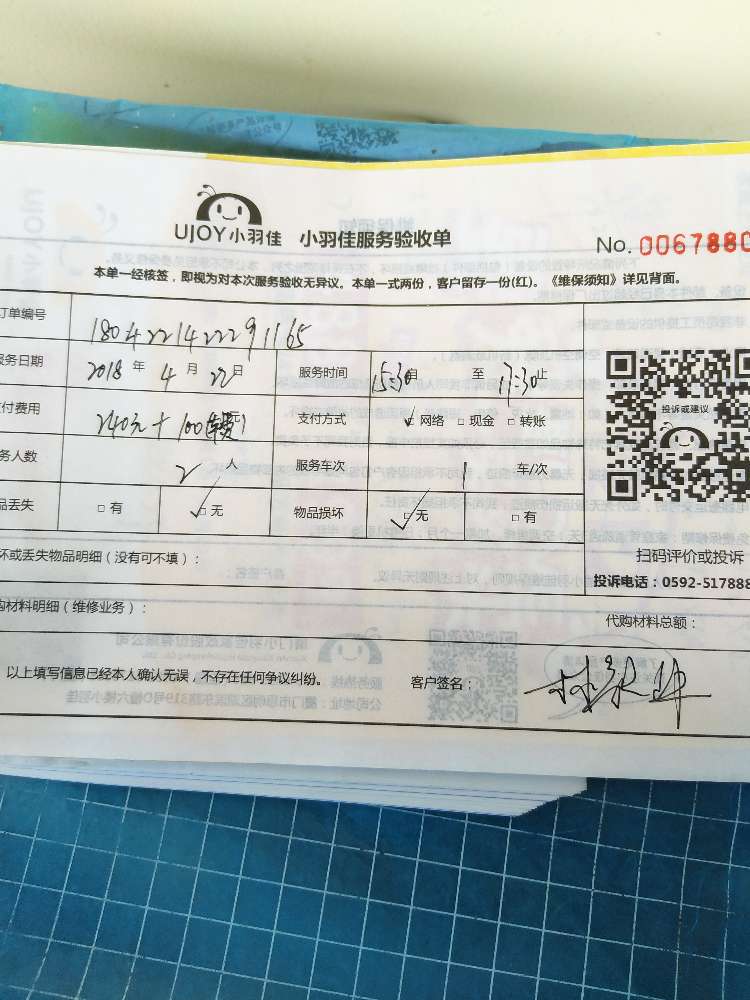 UJOY小羽佳 小羽佳服务验收单 No. 0067880
本单一经核签，即视为对本次服务验收无异议。本单一式两份，客户留存一份(红)。《维保须知》详见背面。
订单编号 180422142229 1165
服务日期 2018 年 4 月 22 日 服务时间 15:30 至 17:30 止
付费用 240元+100 支付方式 网络 □ 现金 □ 转账
务人数 2 人 服务车次 1 车/次
品丢失 □ 有 □ 无 物品损坏 □ 无 □ 有
投诉或建议
坏或丢失物品明细（没有可不填）：
扫码评价或投诉
投诉电话：0592-517888
购材料明细（维修业务）：
代购材料总额：
以上填写信息已经本人确认无误，不存在任何争议纠纷。 客户签名：